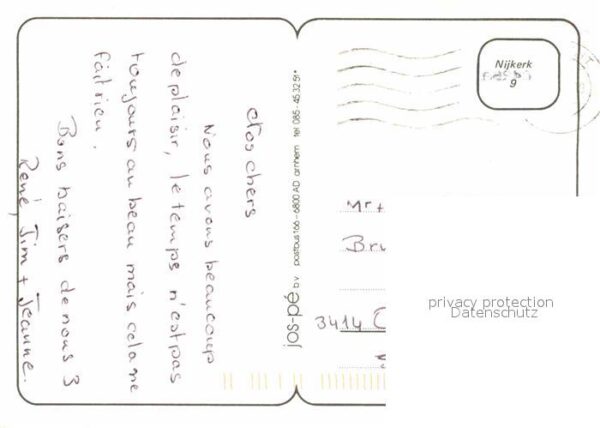 Nos chers
Nous avons beaucoup
de plaisir, le temps n'est pas
toujours au beau mais cela ne
fait rien.
Bons baisers de nous 3
René, Jim + Jeanne.
jos-pé b.v. postbus 166 - 6800 AD arnhem tel 085 - 45 32 51*
Nijkerk
9
Mr +
Bru
3414
privacy protection
Datenschutz